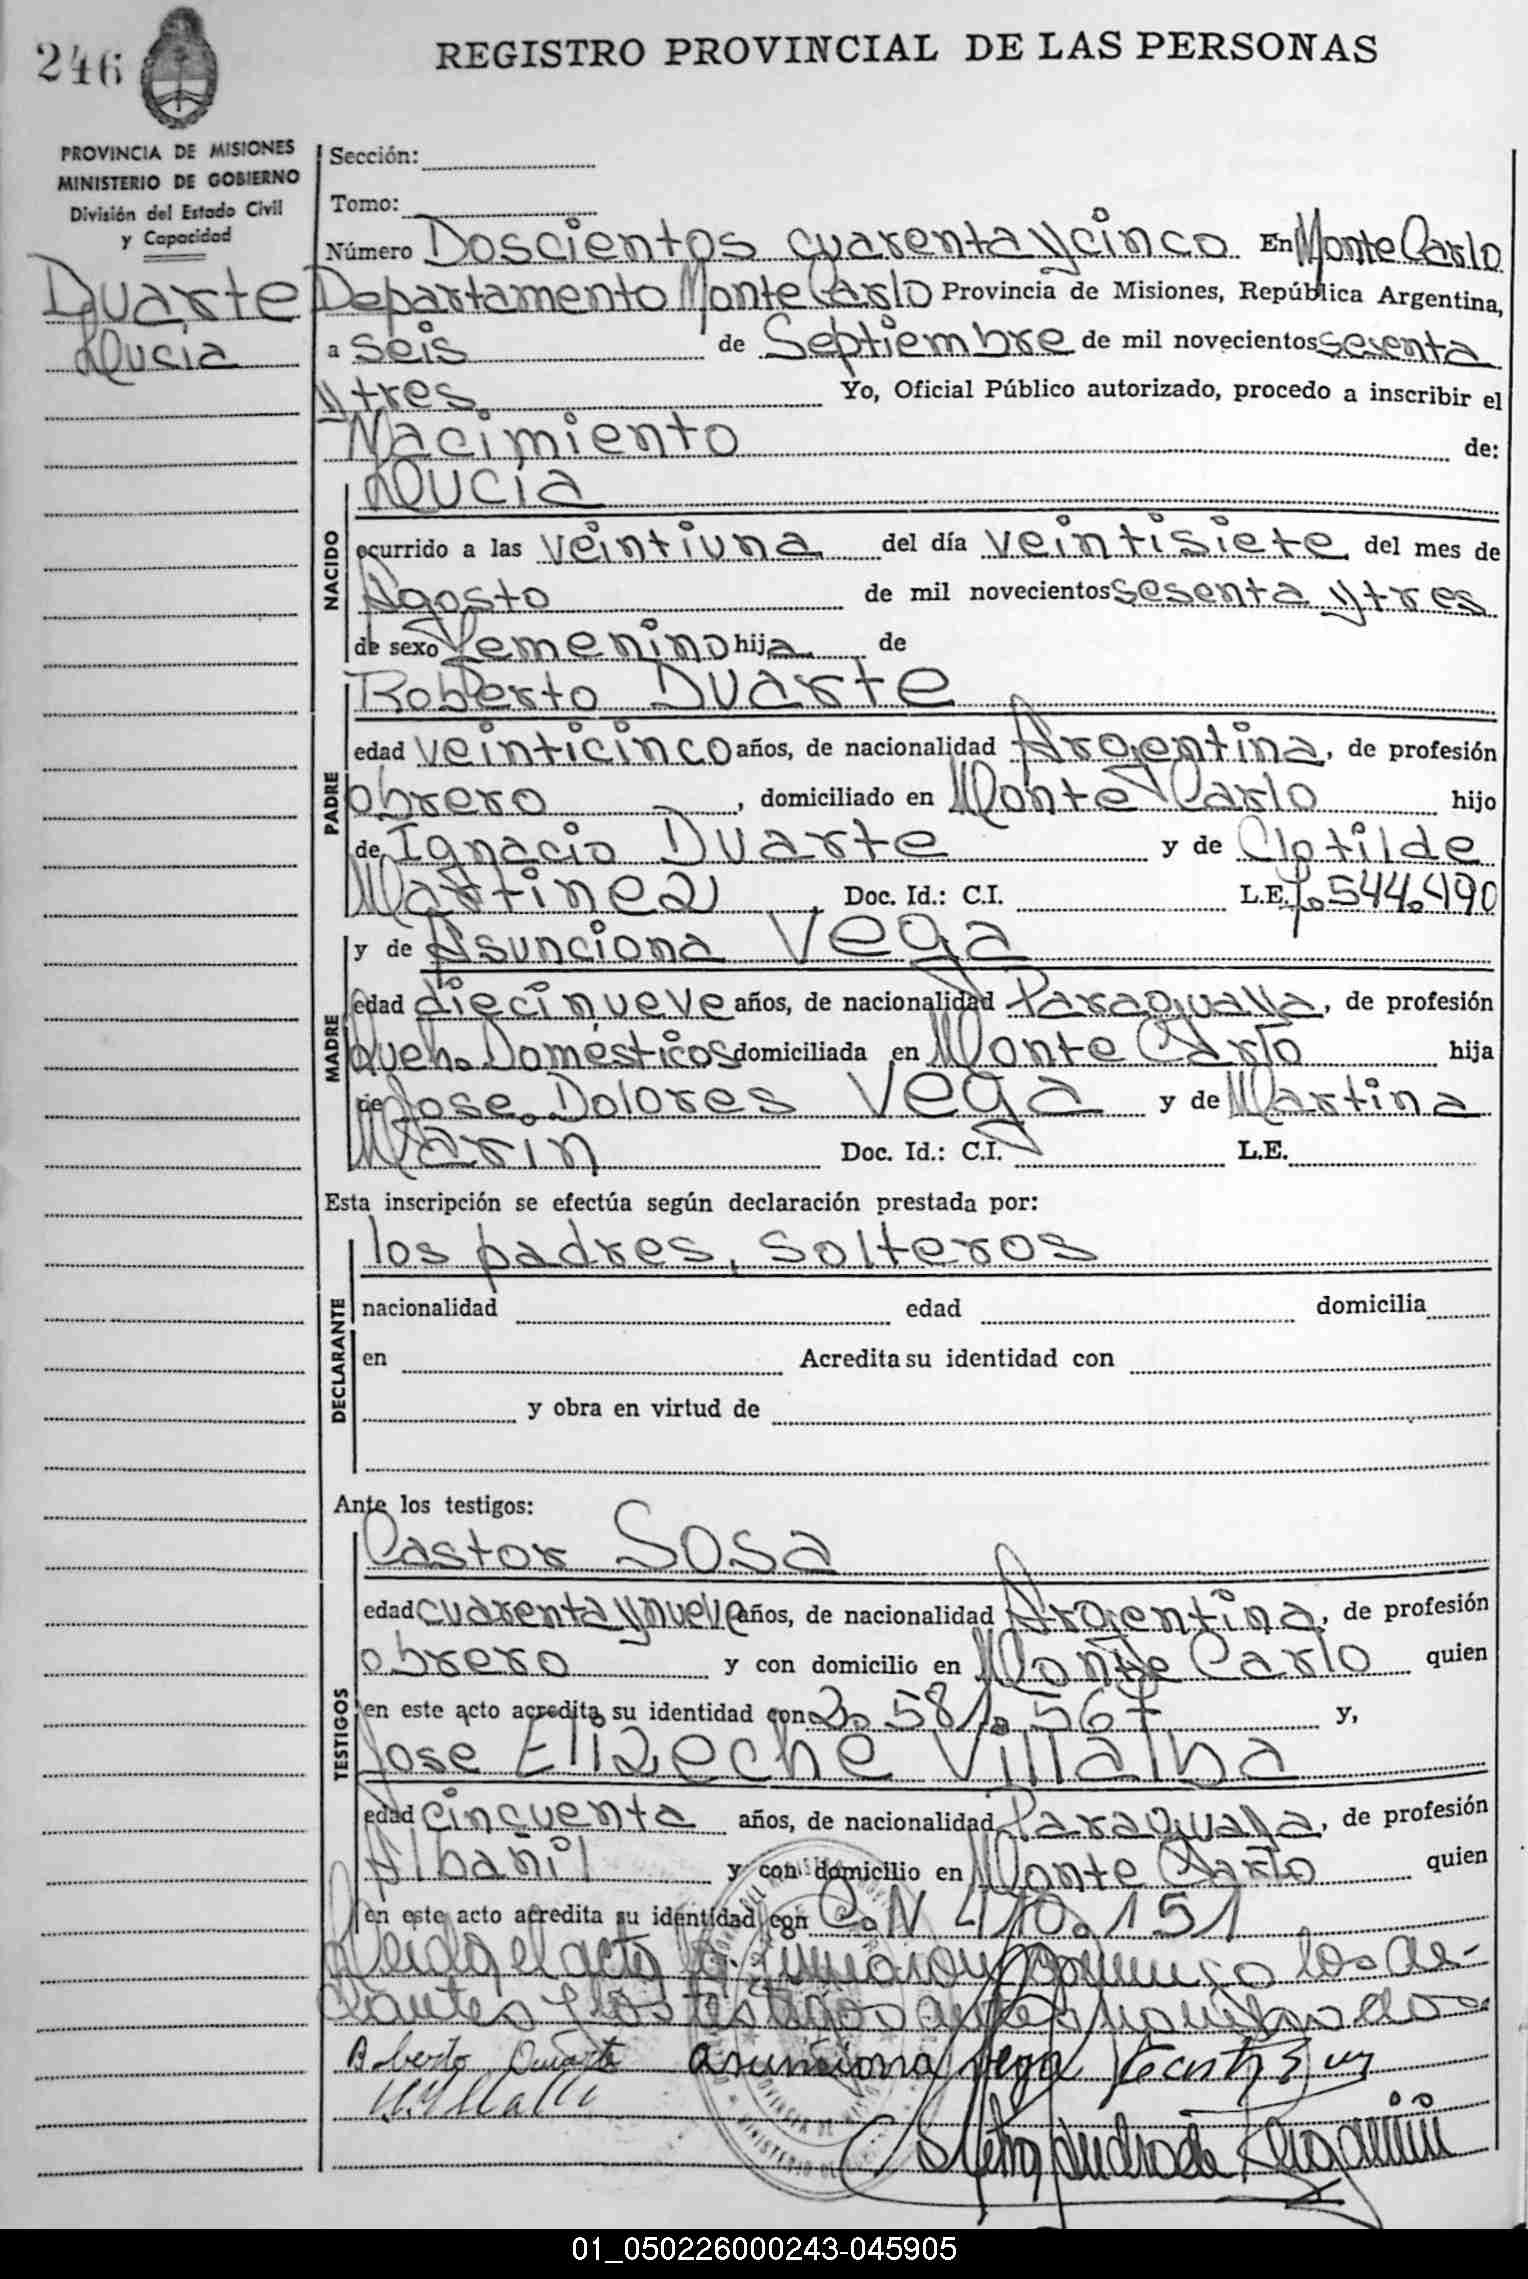 246
REGISTRO PROVINCIAL DE LAS PERSONAS
PROVINCIA DE MISIONES
MINISTERIO DE GOBIERNO
División del Estado Civil
y Capacidad
Duarte
Lucia
Sección:
Tomo:
Número Doscientos cuarenta y cinco En Monte Carlo
Departamento Monte Carlo Provincia de Misiones, República Argentina,
a seis de Septiembre de mil novecientos sesenta
y tres Yo, Oficial Público autorizado, procedo a inscribir el
Nacimiento de:
NACIDO
Lucia
ocurrido a las veintiuna del día veintisiete del mes de
Agosto de mil novecientos sesenta y tres
de sexo Femenino hija de
PADRE
Roberto Duarte
edad veinticinco años, de nacionalidad Argentina, de profesión
obrero, domiciliado en Monte Carlo hijo
de Ignacio Duarte y de Clotilde
Martinez Doc. Id.: C.I. L.E. 544.490
MADRE
y de Asunciona Vega
edad diecinueve años, de nacionalidad Paraguaya, de profesión
Queh. Domésticos domiciliada en Monte Carlo hija
de Jose Dolores Vega y de Martina
Marin Doc. Id.: C.I. L.E.
Esta inscripción se efectúa según declaración prestada por:
DECLARANTE
los padres, solteros
nacionalidad edad domicilia
en Acredita su identidad con
y obra en virtud de
Ante los testigos:
TESTIGOS
Castor Sosa
edad cuarenta y nueve años, de nacionalidad Argentina, de profesión
obrero y con domicilio en Monte Carlo quien
en este acto acredita su identidad con 2.581.567 y,
Jose Elizeche Villalba
edad cincuenta años, de nacionalidad Paraguaya, de profesión
Albañil y con domicilio en Monte Carlo quien
en este acto acredita su identidad con C. N 410.151
Leida el acta la firmaron conmigo los de-
clantes y los testigos antes nombrados
Roberto Duarte asunciona vega
01_050226000243-045905